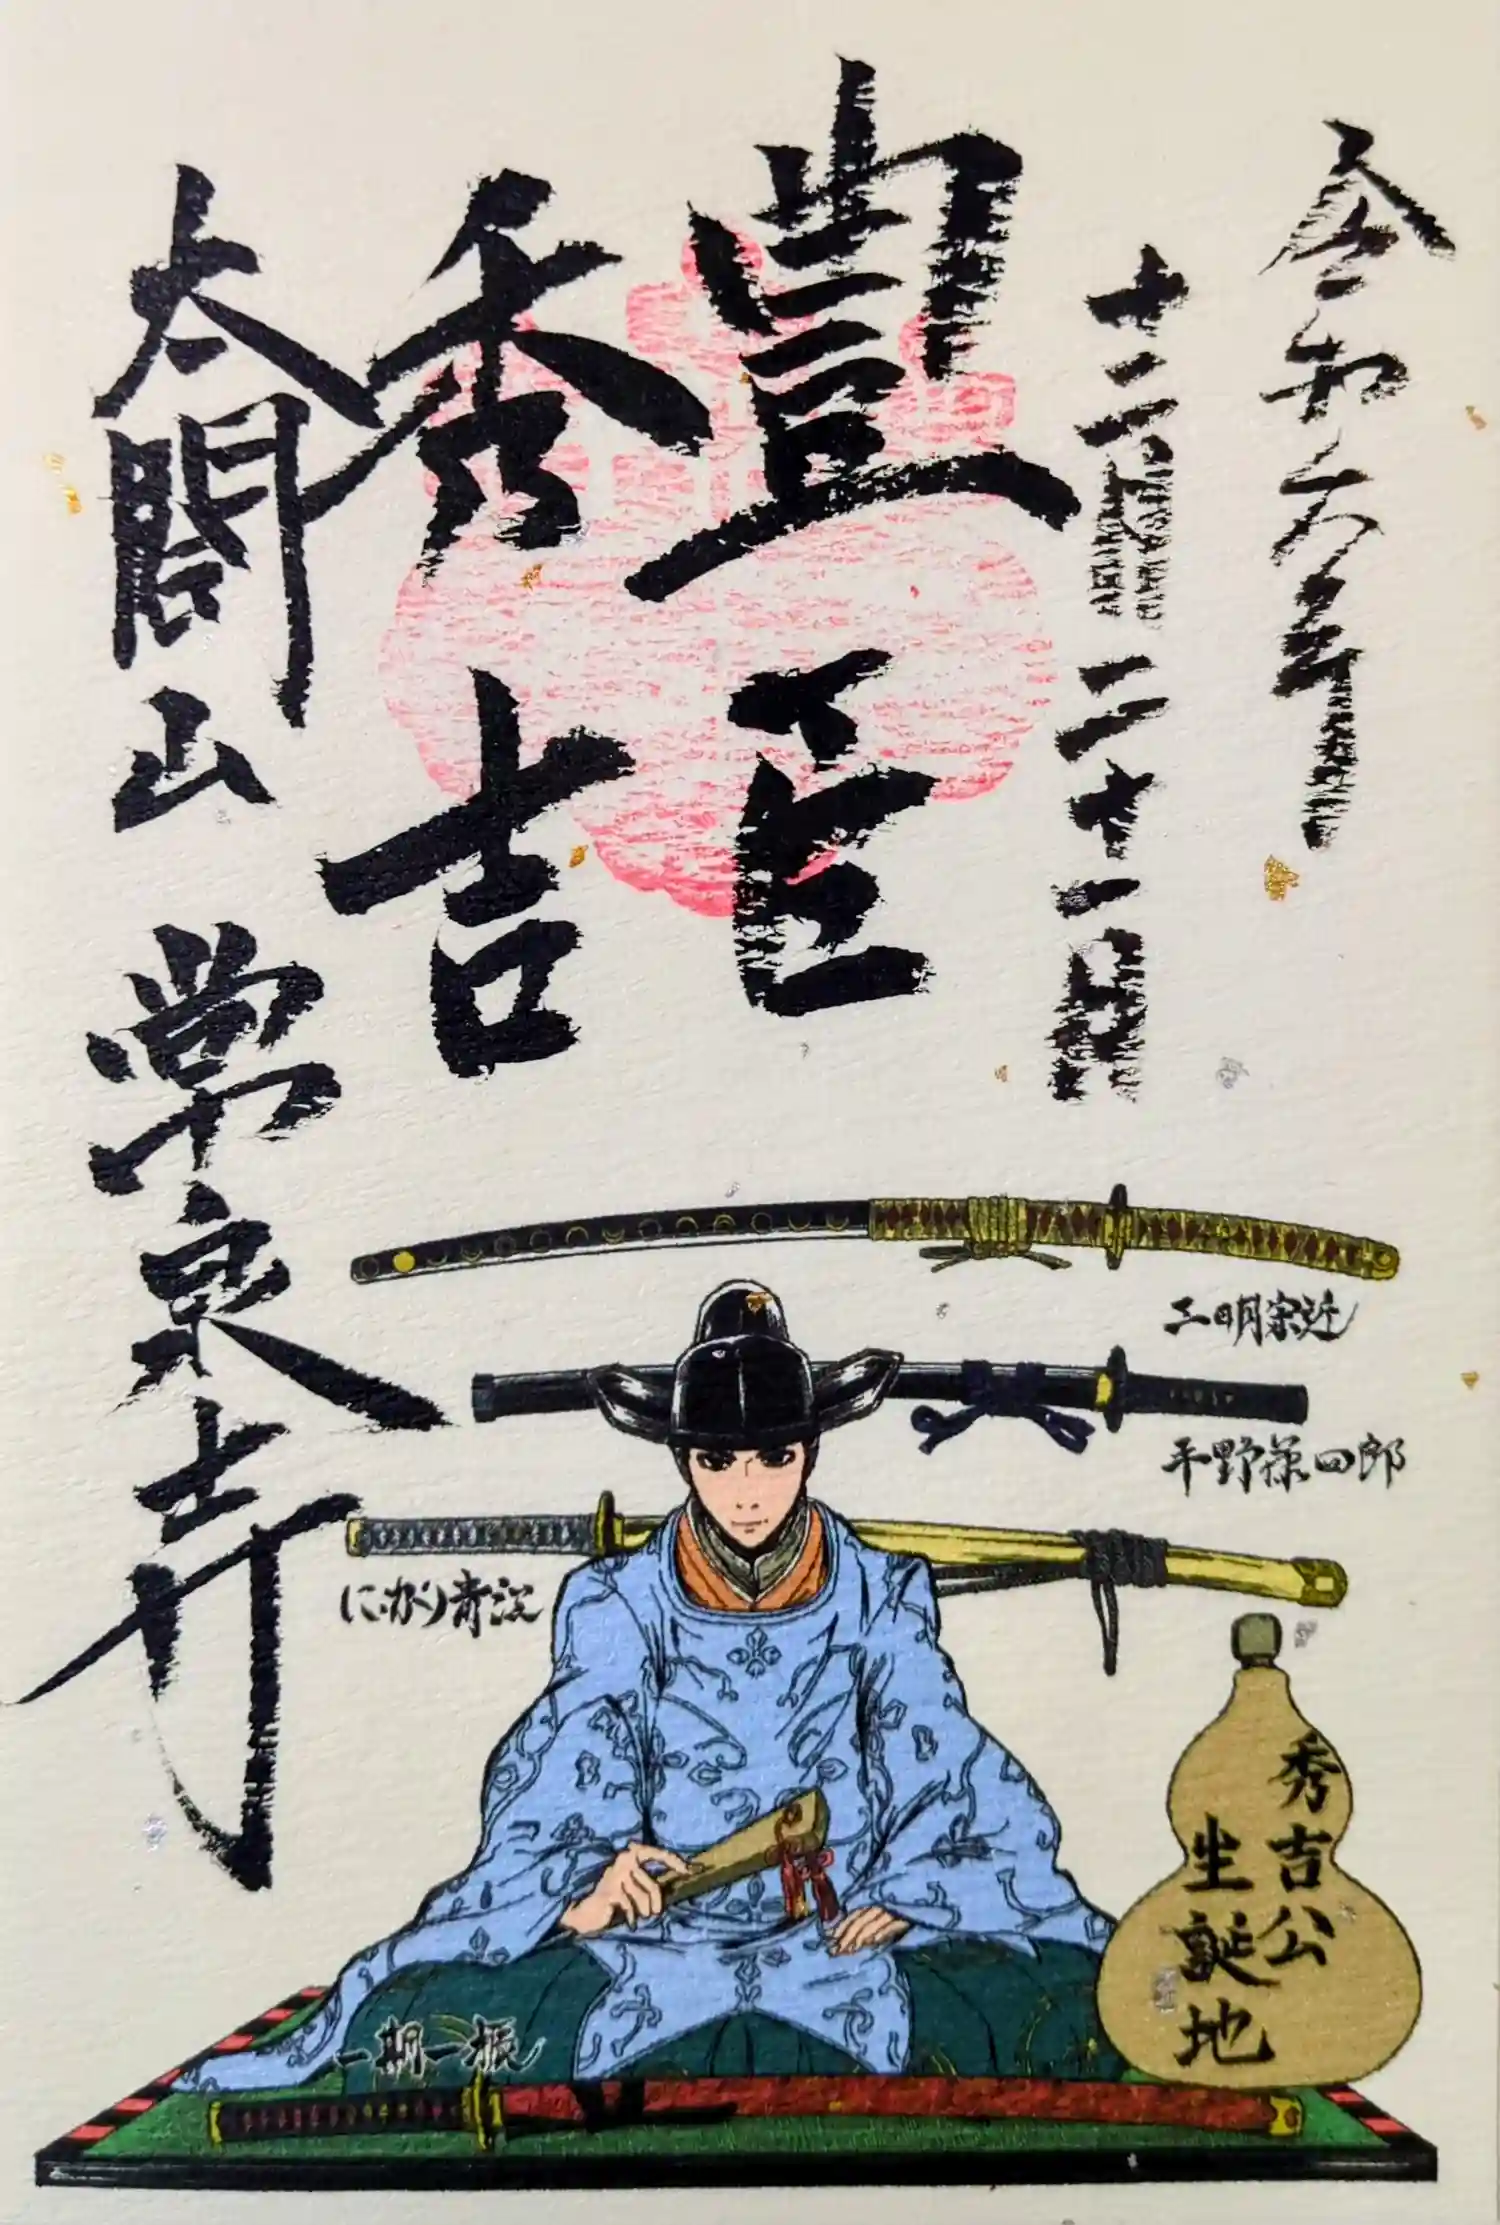 令和六年
十二月二十一日
豊臣
秀吉
太閤山 常泉寺
三日月宗近
平野藤四郎
にっかり青江
秀吉公
生誕地
一期一振